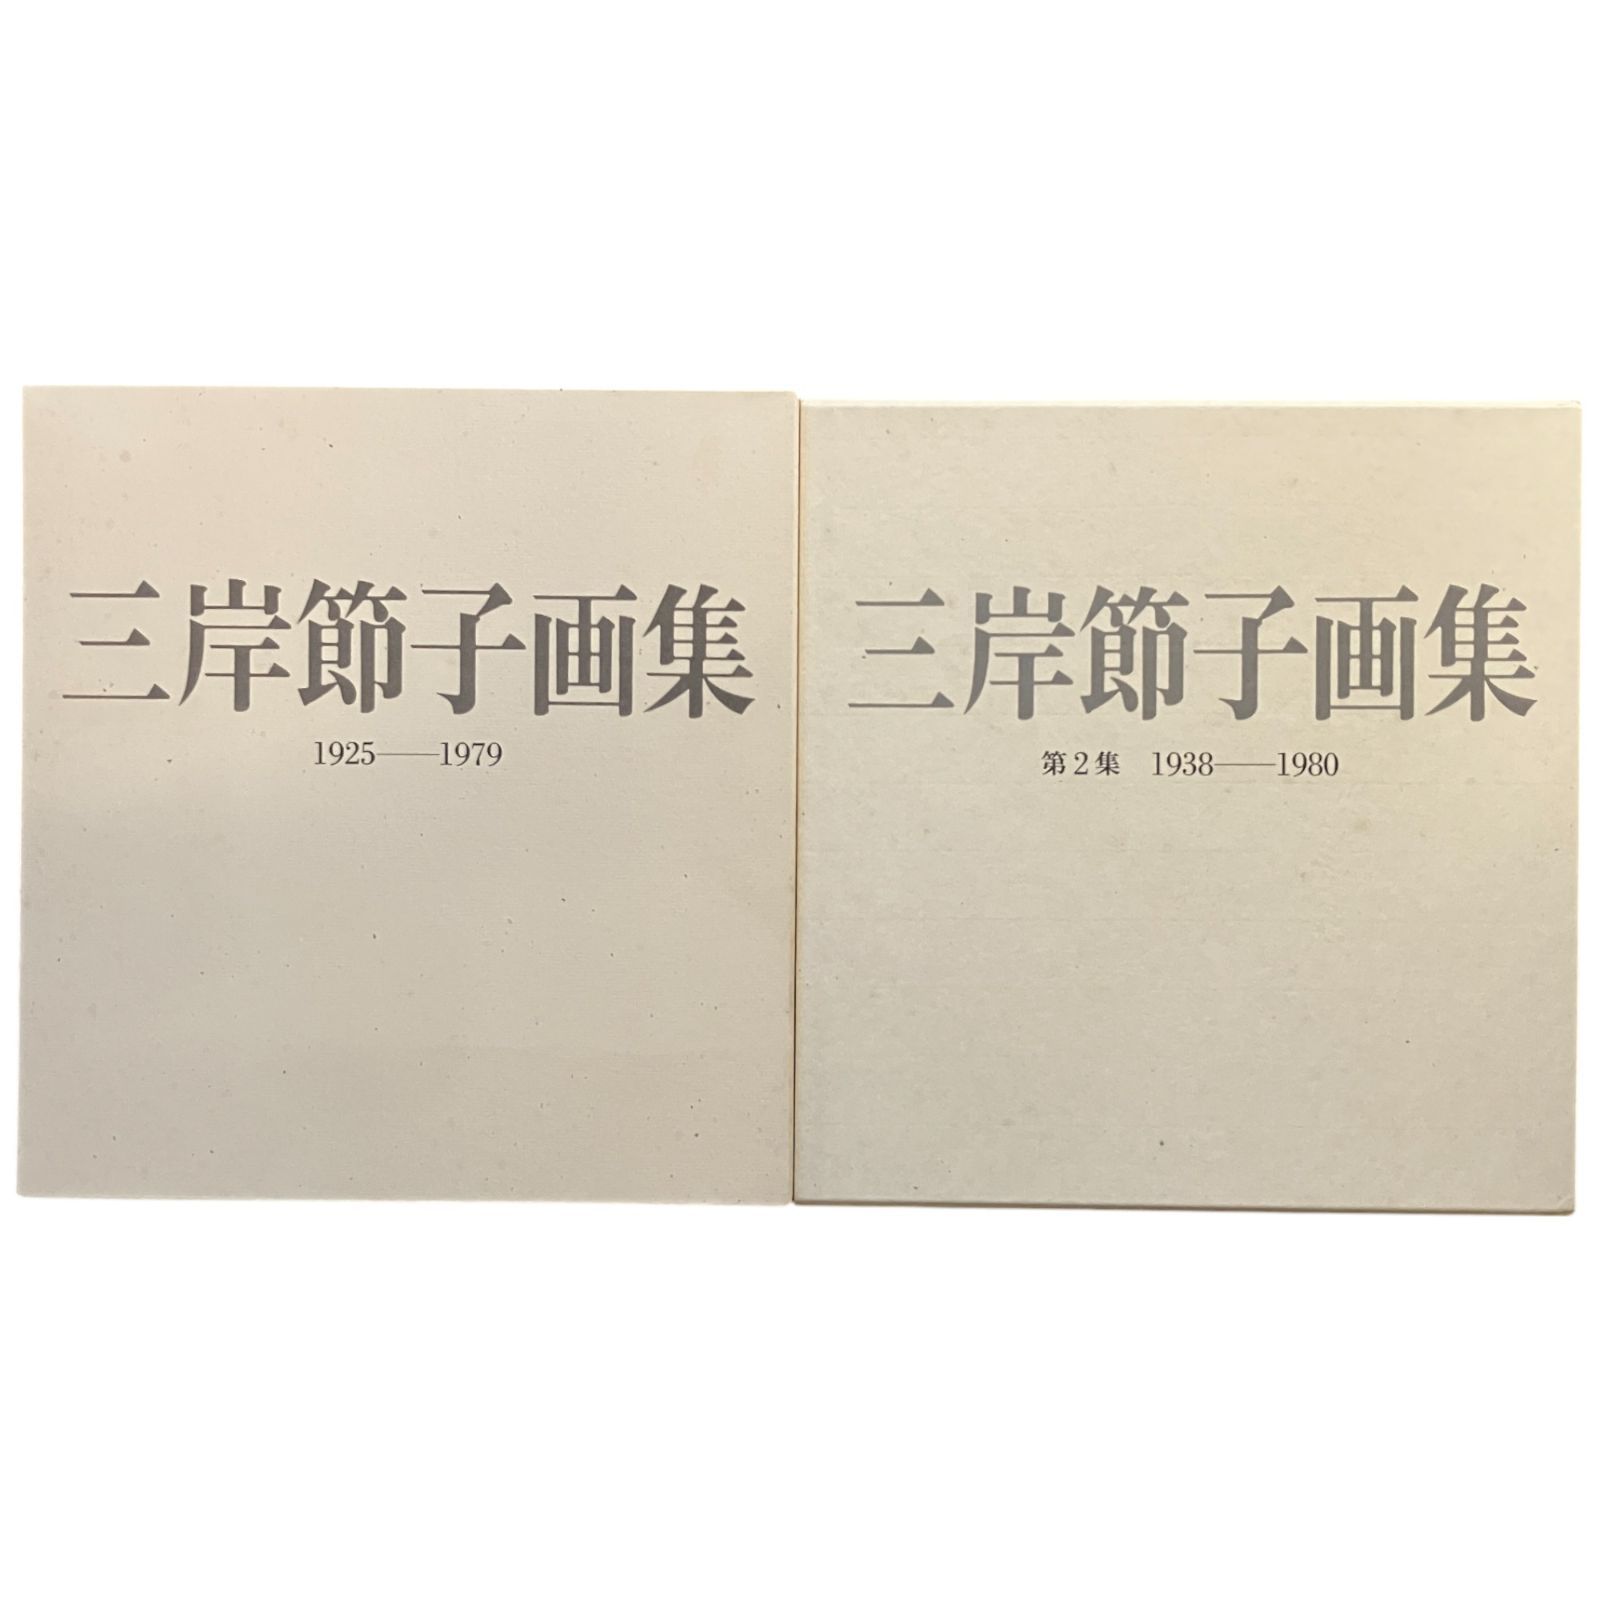 三岸節子画集
1925——1979
三岸節子画集
第2集 1938——1980